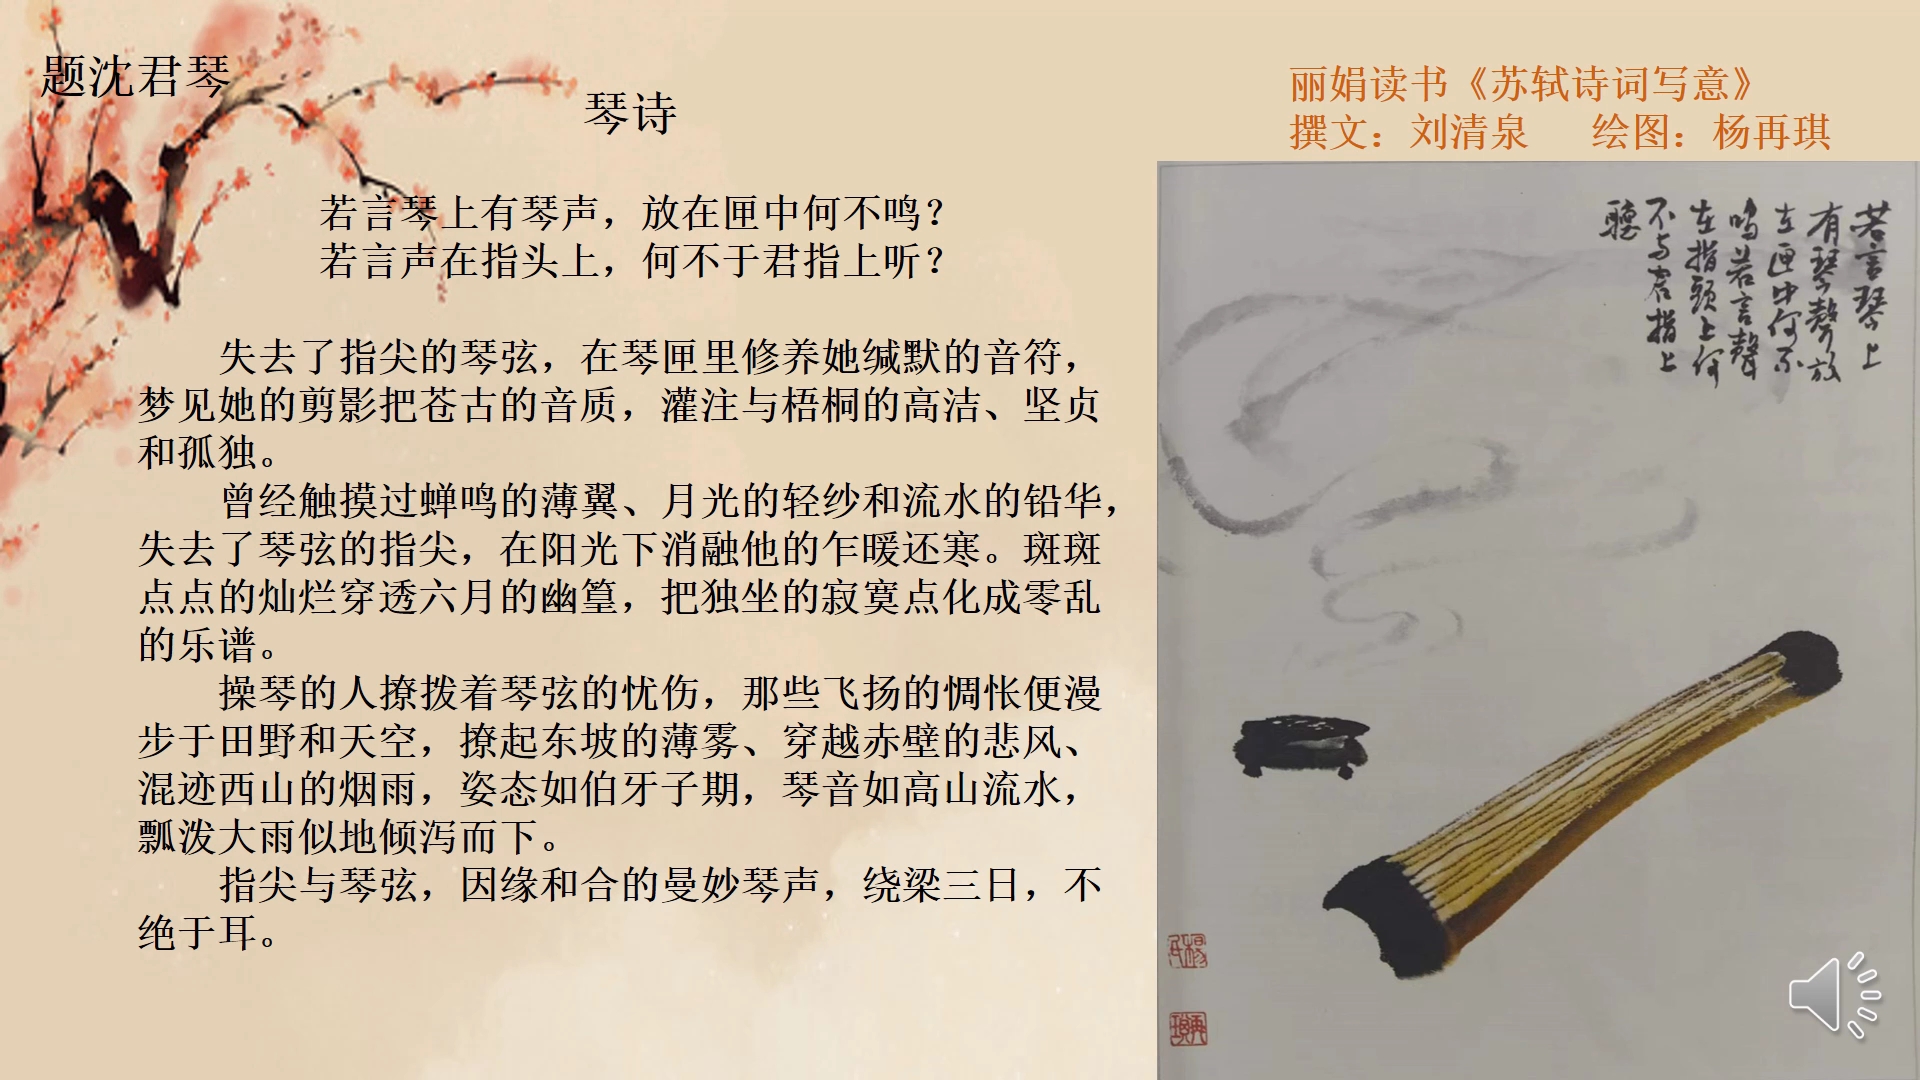 题沈君琴
琴诗
若言琴上有琴声，放在匣中何不鸣？
若言声在指头上，何不于君指上听？
失去了指尖的琴弦，在琴匣里修养她缄默的音符，
梦见她的剪影把苍古的音质，灌注与梧桐的高洁、坚贞
和孤独。
曾经触摸过蝉鸣的薄翼、月光的轻纱和流水的铅华，
失去了琴弦的指尖，在阳光下消融他的乍暖还寒。斑斑
点点的灿烂穿透六月的幽篁，把独坐的寂寞点化成零乱
的乐谱。
操琴的人撩拨着琴弦的忧伤，那些飞扬的惆怅便漫
步于田野和天空，撩起东坡的薄雾、穿越赤壁的悲风、
混迹西山的烟雨，姿态如伯牙子期，琴音如高山流水，
瓢泼大雨似地倾泻而下。
指尖与琴弦，因缘和合的曼妙琴声，绕梁三日，不
绝于耳。
丽娟读书《苏轼诗词写意》
撰文：刘清泉 绘图：杨再琪
若言琴上
有琴聲放
在匣中何不
鸣若言聲
在指頭上何
不与君指上
聽